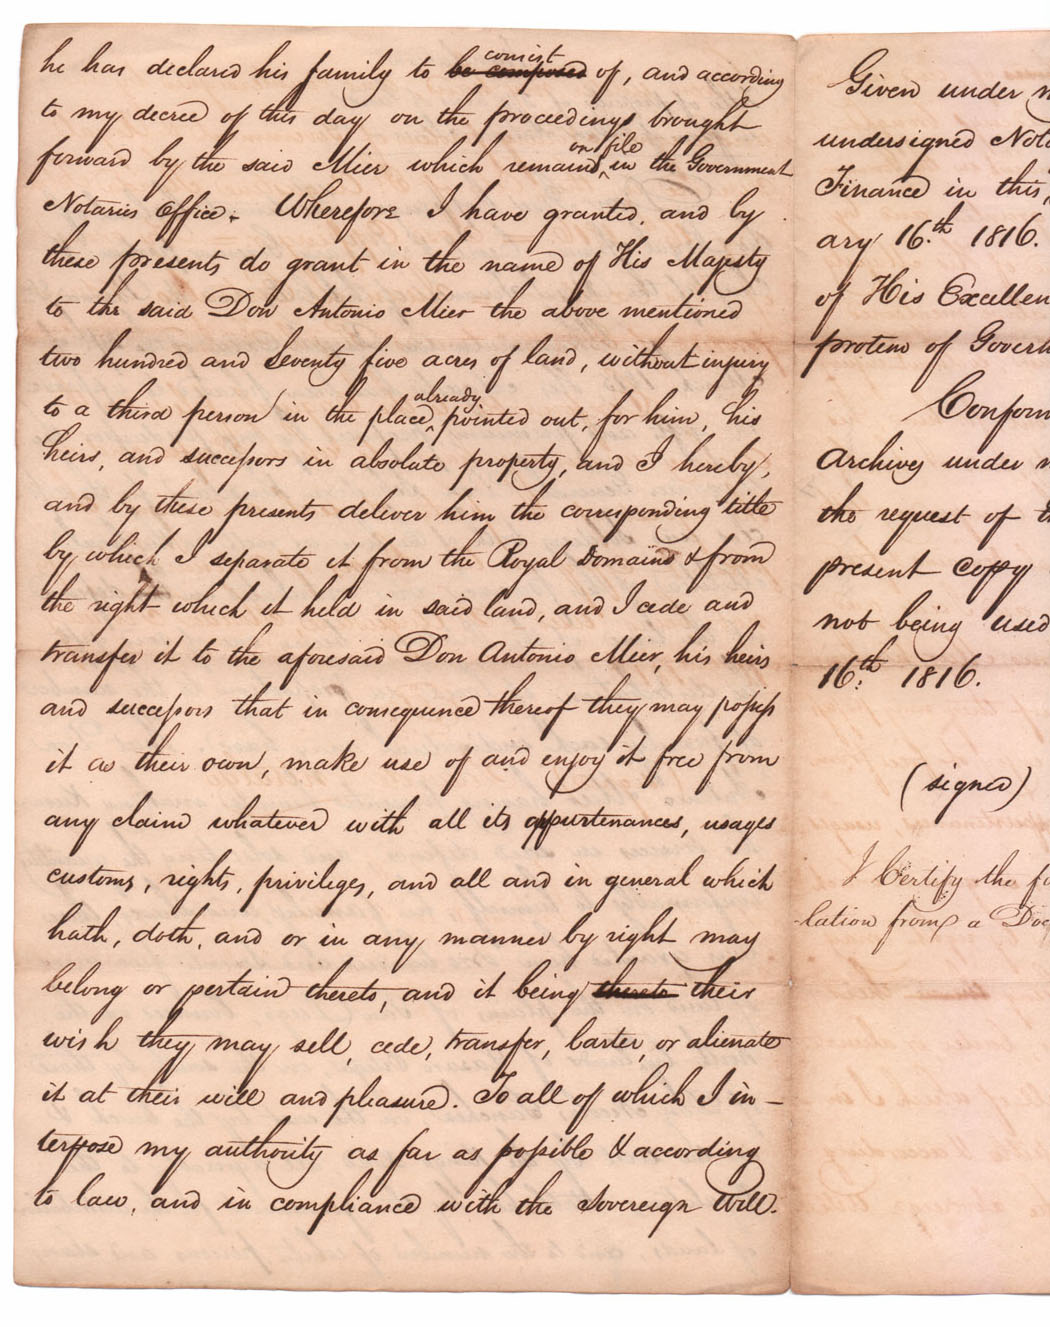 he has declared his family to be composed consist of, and according
to my decree of this day on the proceedings brought
forward by the said Mier which remain, on file in the Government
Notaries Office. Wherefore I have granted, and by
these presents do grant in the name of His Majesty
to the said Don Antonio Mier the above mentioned
two hundred and Seventy five acres of land, without injury
to a third person in the place, already pointed out, for him, his
heirs, and successors in absolute property, and I hereby,
and by these presents deliver him the corresponding title
by which I separate it from the Royal Domains & from
the right which it held in said land, and I cede and
transfer it to the aforesaid Don Antonio Mier, his heirs
and successors that in consequence thereof they may possess
it as their own, make use of and enjoy it free from
any claim whatever with all its appurtenances, usages
customs, rights, privileges, and all and in general which
hath, doth, and or in any manner by right may
belong or pertain thereto, and it being thereto their
wish they may sell, cede, transfer, barter, or alienate
it at their will and pleasure. To all of which I in-
terpose my authority as far as possible & according
to law, and in compliance with the Sovereign Will.
Given under m
undersigned Nota
Finance in this,
ary 16.th 1816.
of His Excellen
protem of Govern
Conform
Archives under m
the request of
present copy
not being used
16.th 1816.
(signed)
I Certify the fo
lation from a Doc